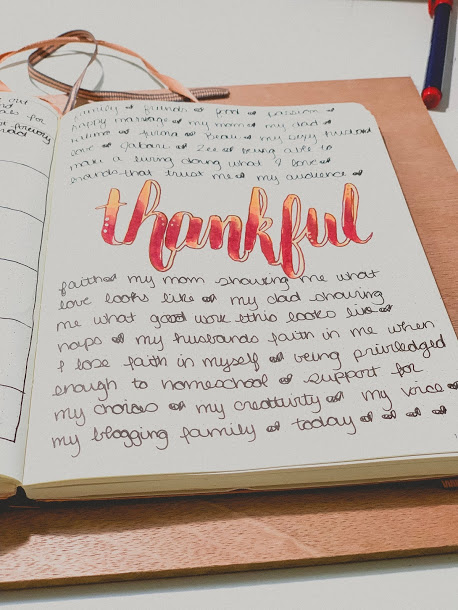 family friends food passion
happy marriage my mom my dad
my sexy husband
love Jabari Zee being able to
make a living doing what I love
brands that trust me my audience
thankful
faith my mom showing me what
love looks like my dad showing
me what good work looks like
naps my husbands faith in me when
I lose faith in myself being priviledged
enough to homeschool support for
my choices my creativity my voice
my blogging family today